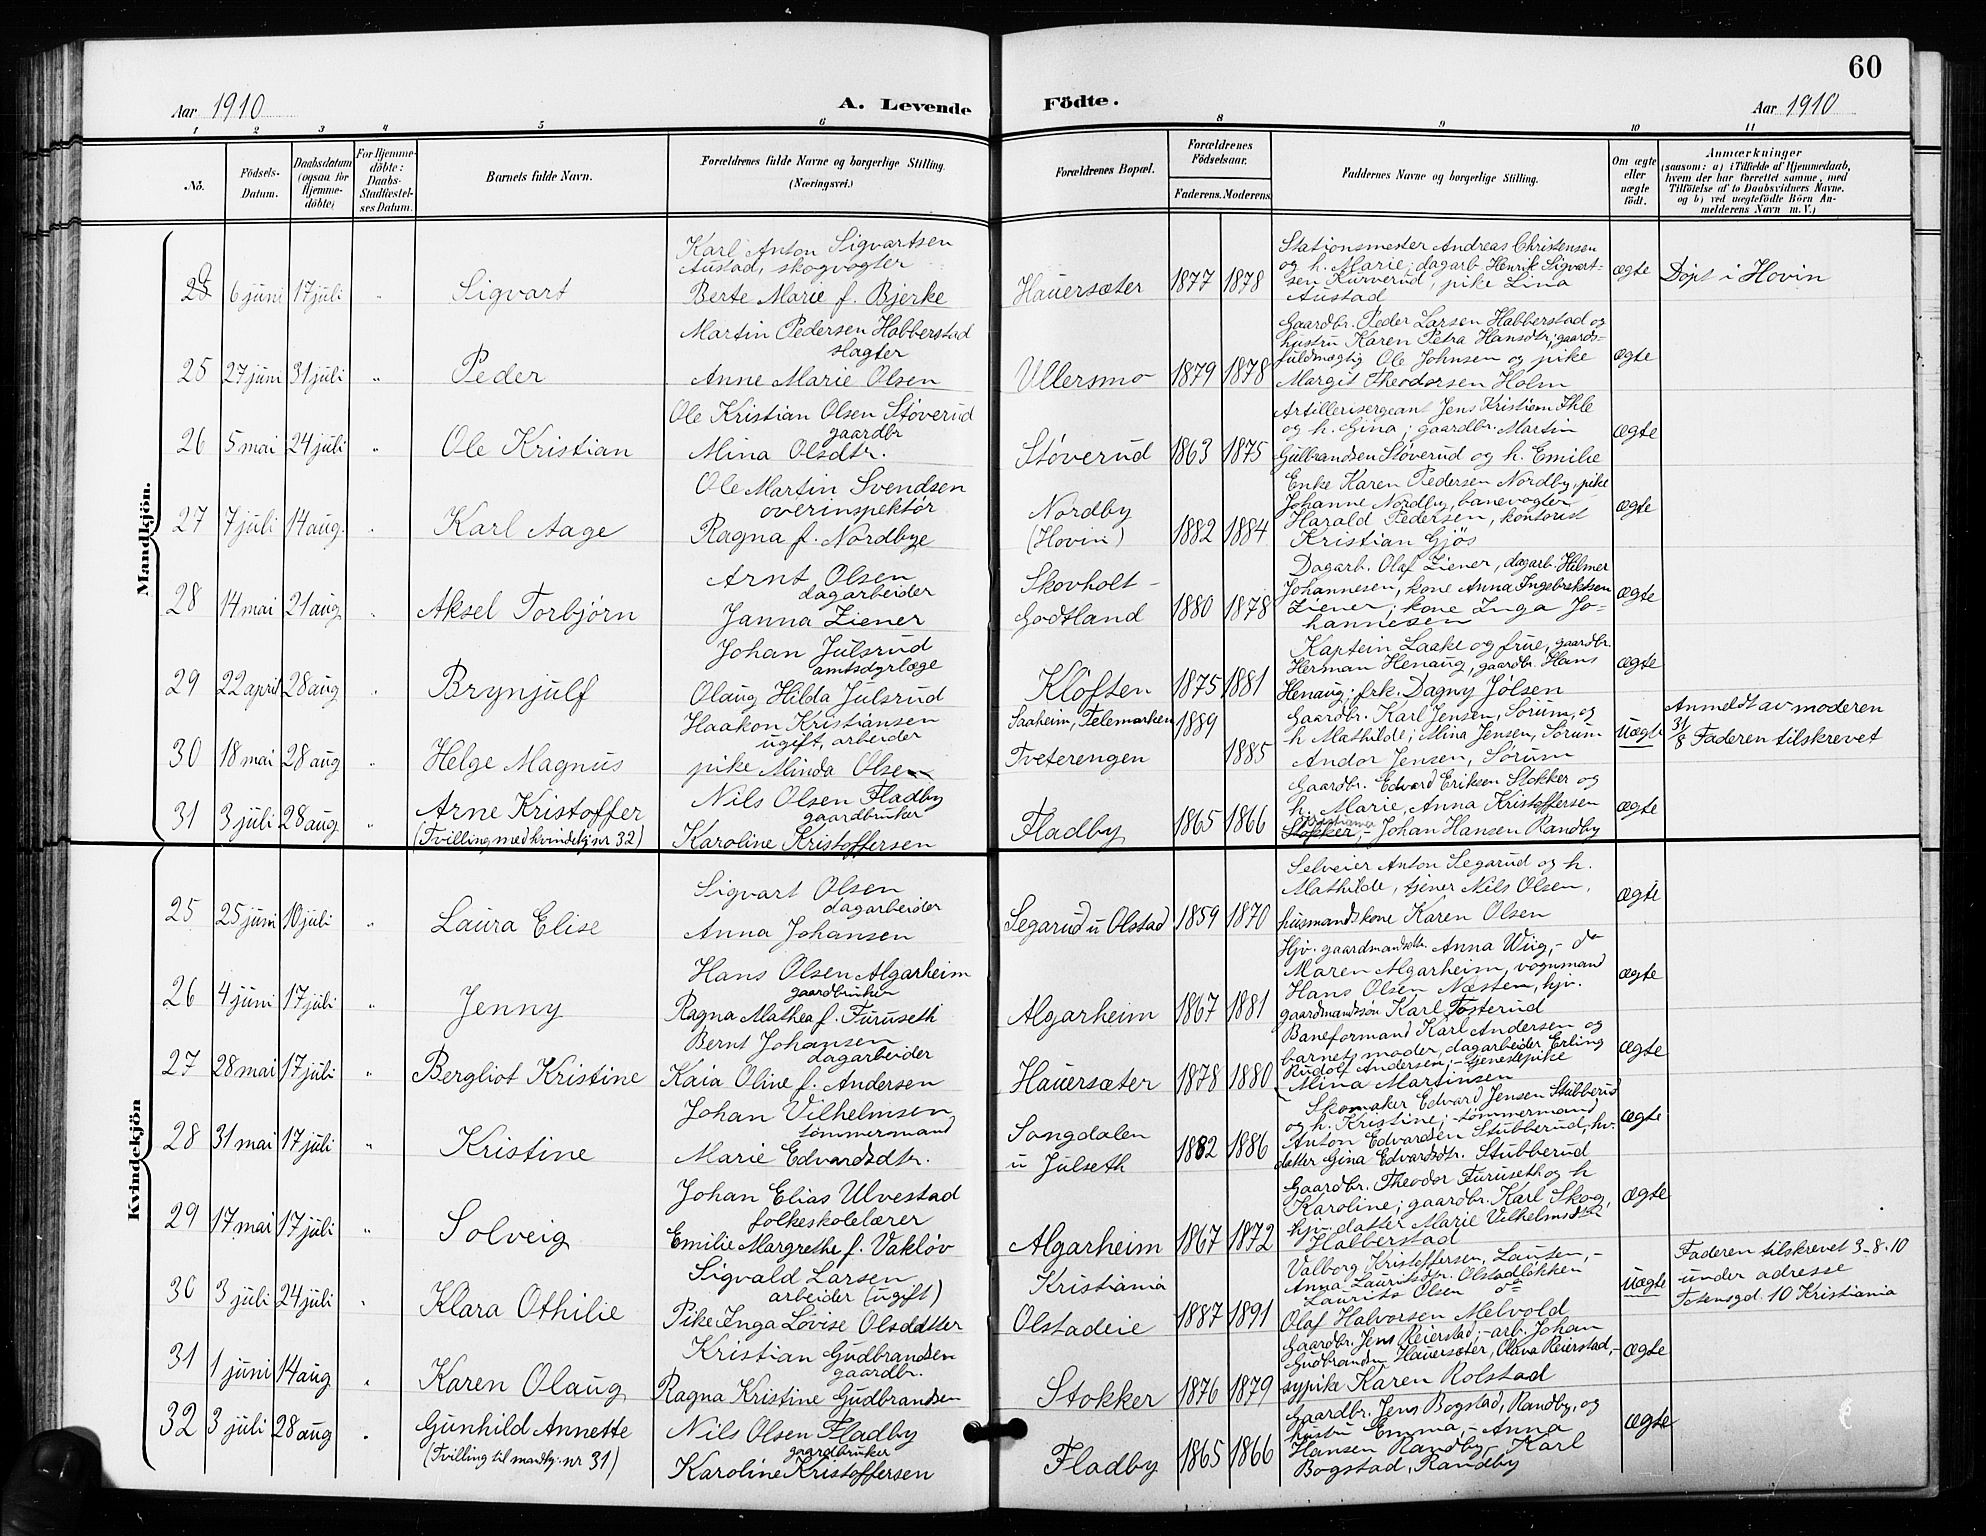 60
Aar 1910
A. Levende
Födte.
Aar 1910
1 2 3 4 5 6 8 9 10 11
No.
Födsels-
Datum.
Daabsdatum
(ogsaa for
Hjemme-
döbte)
For Hjemme-
döbte:
Daabs-
Stadfæstel-
ses Datum.
Barnets fulde Navn.
Forældrenes fulde Navne og borgerlige Stilling.
(Næringsvei.)
Forældrenes Bopæl.
Forældrenes
Födselsaar.
Faderens. Moderens.
Faddernes Navne og borgerlige Stilling.
Om ægte
eller
uægte
födt.
Anmærkninger
(saasom: a) i Tilfælde af Hjemmedaab,
hvem der har forrettet samme, med
Tilföielse af to Daabsvidners Navne.
og b) ved uægtefödte Börn An-
melderens Navn m. V.)
Mandkjön.
6 juni 17 juli " Sigvart
Karl Anton Sigvartsen
Austad, skogvogter
Berte Marie f. Bjerke
Hauersæter 1877 1878
Stationsmester Andreas Christensen
og h. Marie; dagarb. Henrik Sigvart-
sen Kurverud, pike Lina
Austad
ægte
Døpt i Hovin
25 27 juni 31 juli " Peder
Martin Pedersen Habberstad
slagter
Anne Marie Olsen
Ullersmo 1879 1878
Gaardbr. Peder Larsen Habberstad og
hustru Karen Petra Hansdtr; gaards-
fuldmægtig Ole Johnsen og pike
Margit Theodorsen Holm
ægte
26 5 mai 24 juli " Ole Kristian
Ole Kristian Olsen Støverud
gaardbr
Mina Olsdtr.
Støverud 1863 1875
Artillerisergeant Jens Kristian Ihle
og h. Gina; gaardbr. Martin
Gulbrandsen Støverud og h. Emilie
ægte
27 7 juli 14 aug. " Karl Aage
Ole Martin Svendsen
overinspektør
Ragna f. Nordbye
Nordby
(Hovin) 1882 1884
Enke Karen Pedersen Nordby, pike
Johanne Nordby, banevogter
Harald Pedersen, kontorist
Kristian Gjøs
ægte
28 14 mai 21 aug " Aksel Torbjørn
Arnt Olsen
dagarbeider
Janna Ziener
Skovholt -
Godtland 1880 1878
Dagarb. Olaf Ziener, dagarb. Hilmer
Johannesen, kone Anna Ingebrektsen
Ziener; kone Inga Jo-
hannesen
ægte
29 22 april 28 aug " Brynjulf
Johan Julsrud
amtsdyrlæge
Olaug Hilda Julsrud
Kløften 1875 1881
Kaptein Laake og frue, gaardbr.
Herman Henaug, gaardbr. Hans
Henaug; frk. Dagny Jølsen
ægte
30 18 mai 28 aug " Helge Magnus
Haakon Kristiansen
ugift, arbeider
pike Minda Olsen
Saaheim, Telemarken 1889
Tveterengen 1885
Gaardbr. Karl Jensen, Sørum, og
h Mathilde; Mina Jensen, Sørum
Andor Jensen, Sørum
uægte
Anmeldt av moderen
31/8 Faderen tilskrevet
31 3 juli 28 aug " Arne Kristoffer
(Tvilling med kvindekj nr 32)
Nils Olsen Fladby
gaardbruker
Karoline Kristoffersen
Fladby 1865 1866
Gaardbr. Edvard Eriksen Stokker og
h. Marie, Anna Kristoffersen
Kristiania
Stokker, - Johan Hansen Randby
ægte
Kvindekjön
25 25 juni 10 juli " Laura Elise
Sigvart Olsen
dagarbeider
Anna Johansen
Segarud u Olstad 1859 1870
Selveier Anton Segarud og h.
Mathilde, tjener Nils Olsen,
husmandskone Karen Olsen
ægte
26 4 juni 17 juli " Jenny
Hans Olsen Algarheim
gaardbruker
Ragna Mathea f. Furuseth
Algarheim 1867 1881
Hjv. gaardmandsdtr. Anna Wiig, - do
Maren Algarheim, vognmand
Hans Olsen Næsten, hjv.
gaardmandssøn Karl Fosterud
ægte
27 28 mai 17 juli " Bergliot Kristine
Bernt Johansen
dagarbeider
Kaia Oline f. Andersen
Hauersæter 1878 1880
Baneformand Karl Andersen og
barnets moder, dagarbeider Erling
Rudolf Andersen; - tjenestepike
Mina Martinsen
ægte
28 31 mai 17 juli " Kristine
Johan Vilhelmsen
tømmermand
Marie Edvardsdtr.
Songdalen
u Julseth 1882 1886
Skomaker Edvard Jensen Stubberud
og h. Kristine; tømmermand
Anton Edvardsen Stubberud, hv.
datter Gina Edvardsdtr. Stubberud
ægte
29 17 mai 17 juli " Solveig
Johan Elias Ulvestad
folkeskolelærer
Emilie Margrethe f. Vakløv
Algarheim 1867 1872
Gaardbr. Theodor Furuseth og h
Karoline; gaardbr. Karl Skog,
hjv. datter Marie Vilhelmsdtr
Habberstad
ægte
30 3 juli 24 juli " Klara Othilie
Sigvald Larsen
arbeider (ugift)
Pike Inga Lovise Olsdatter
Kristiania
Olstadeie 1887 1891
Valborg Kristoffersen, Lausen, -
Anna Lauritsdtr. Olstadløkken
Laurits Olsen do
Olaf Halvorsen Melvold
uægte
Faderen tilskrevet 3-8-10
under adresse
Totensgd. 10 Kristiania
31 1 juni 14 aug " Karen Olaug
Kristian Gudbrandsen
gaardbr.
Ragna Kristine Gudbrandsen
Stokker 1876 1879
Gaardbr. Jens Reierstad, - arb. Johan
Gudbrandsen Hauersæter, Olava Reierstad, -
sypike Karen Rolstad
ægte
32 3 juli 28 aug " Gunhild Annette
(Tvilling til mandkj. nr 31)
Nils Olsen Fladby
gaardbruker
Karoline Kristoffersen
Fladby 1865 1866
Gaardbr. Jens Bogstad, Randby, og
hustru Emma, - Anna
Hansen Randby, Karl
Bogstad, Randby
ægte